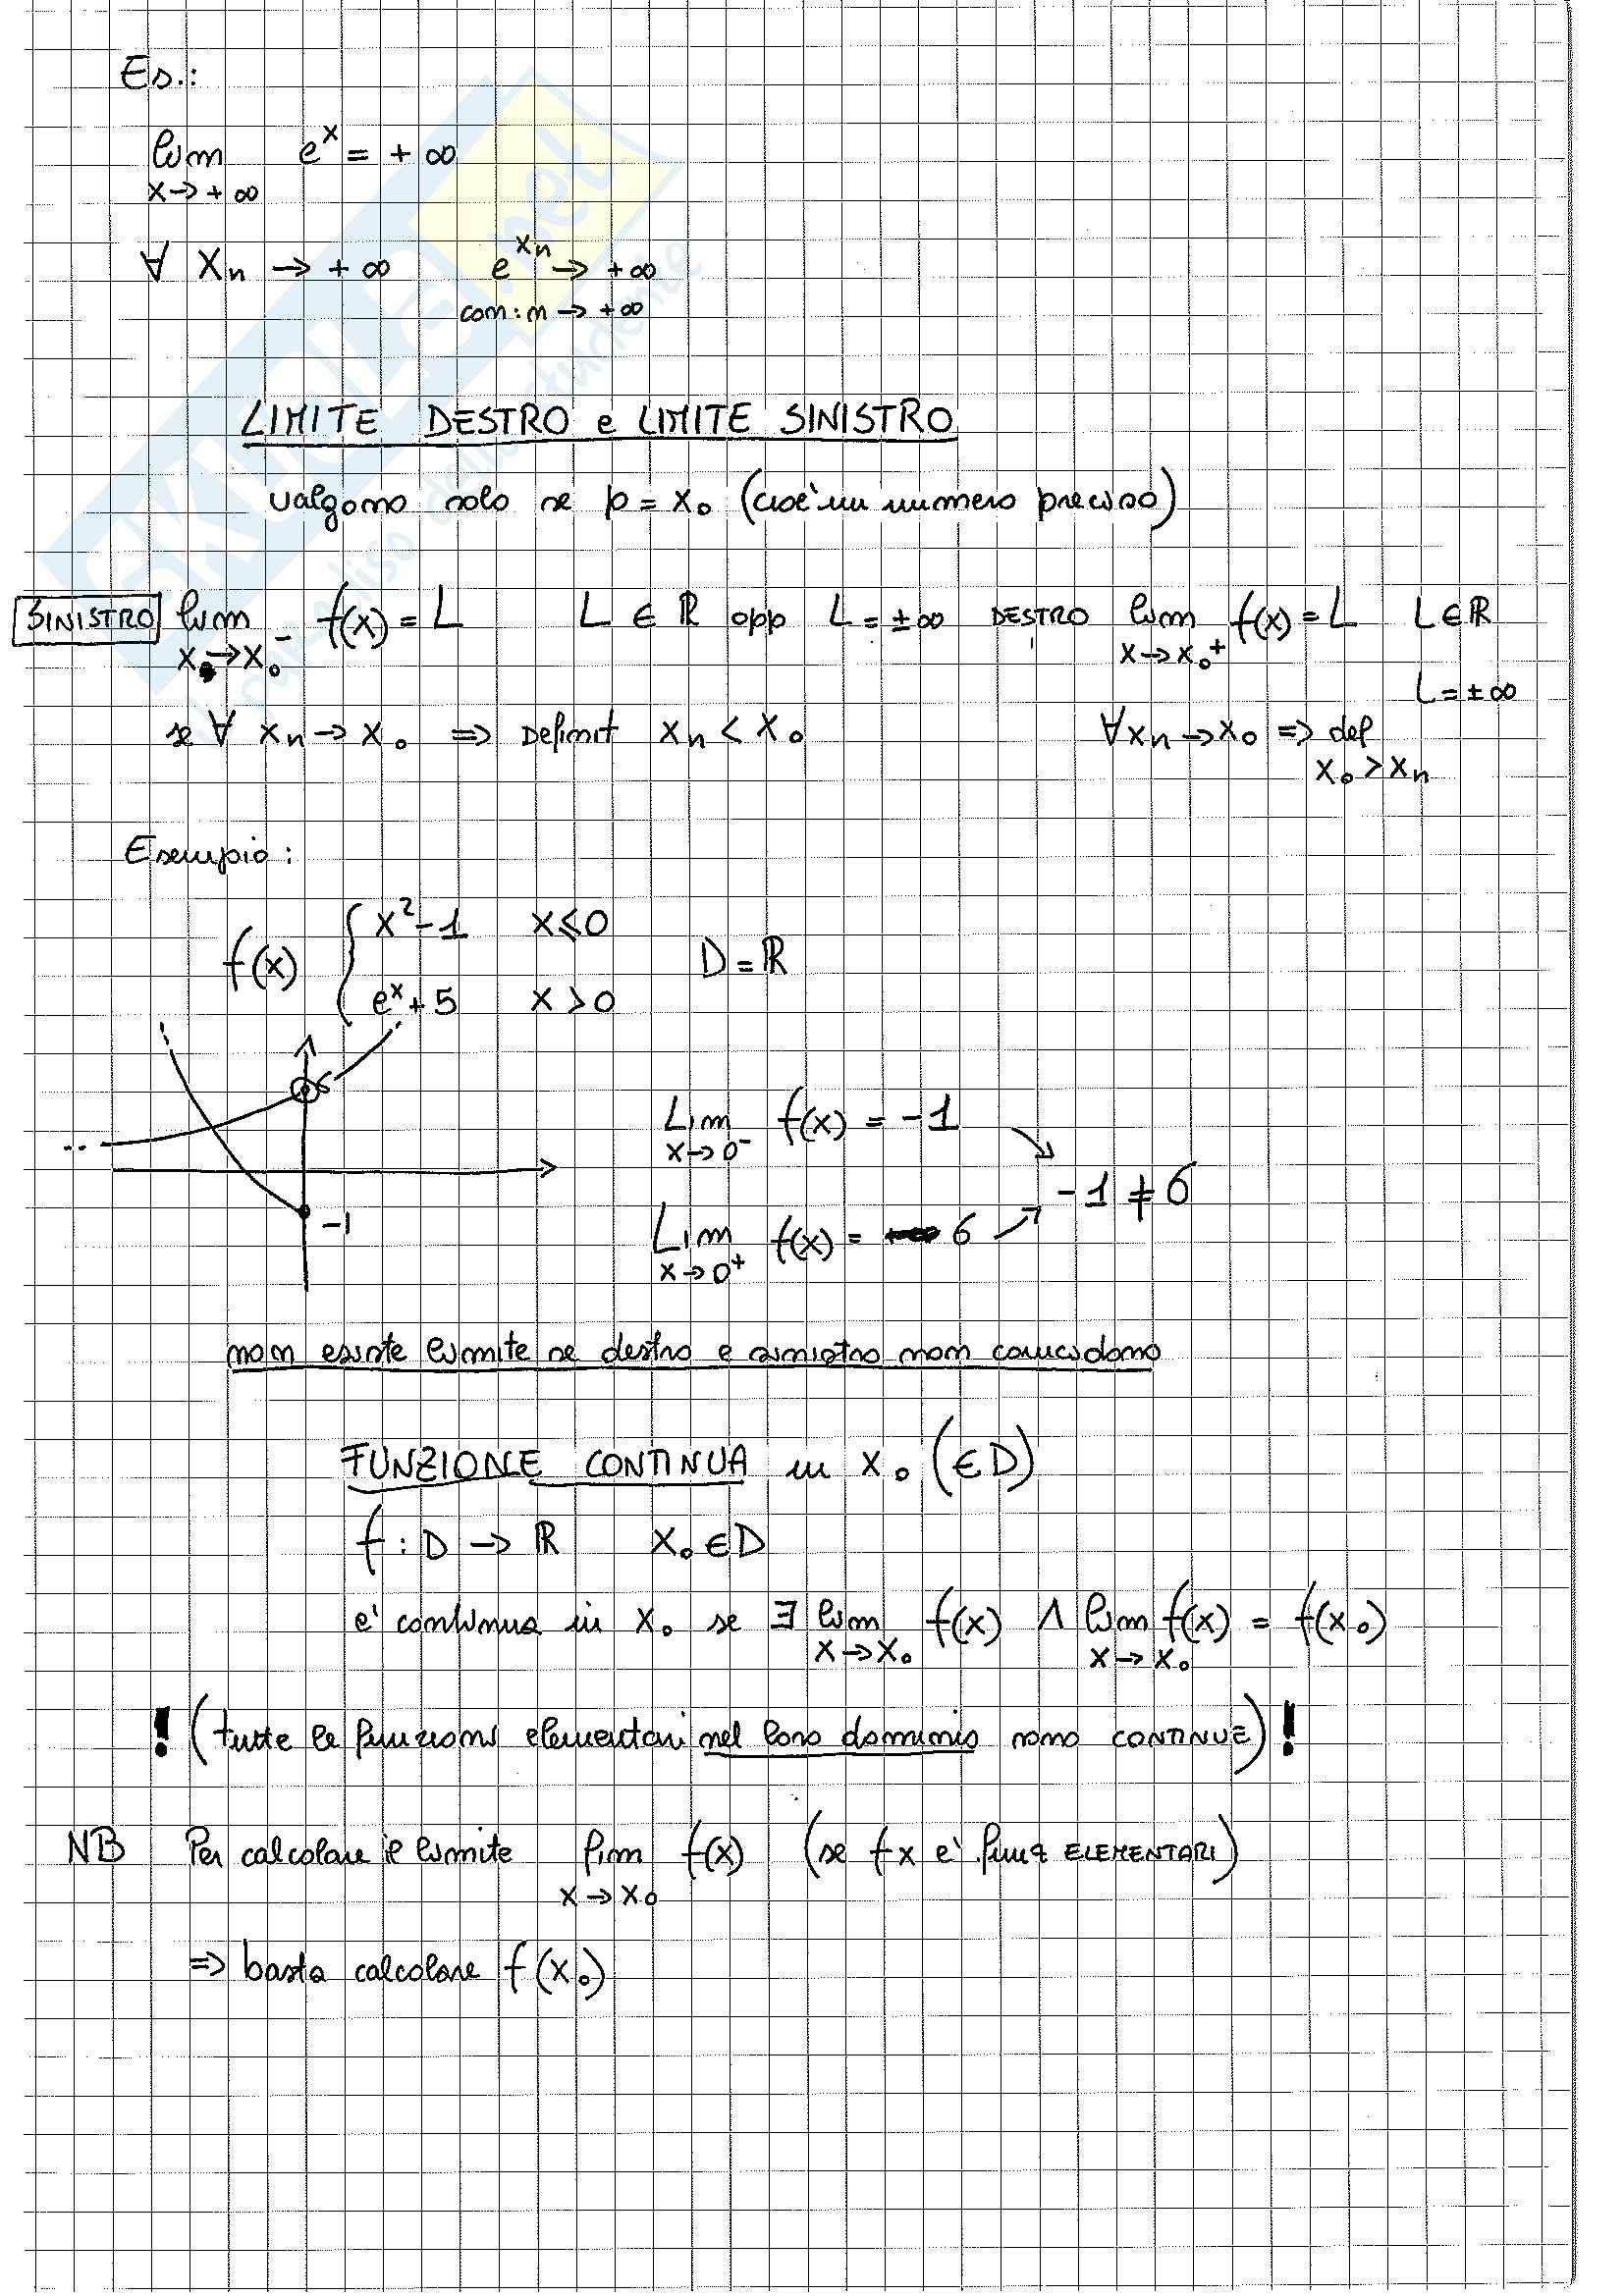 Es.:
lim eˣ = + ∞
x → + ∞
∀ Xₙ → + ∞ e^xₙ → + ∞
con: n → + ∞
LIMITE DESTRO e LIMITE SINISTRO
valgono solo se p = x₀ (cioè un numero preciso)
SINISTRO lim f(x) = L L ∈ ℝ opp L = ± ∞ DESTRO lim f(x) = L L ∈ ℝ
x → x₀⁻ x → x₀⁺
L = ± ∞
se ∀ xₙ → x₀ ⇒ Definit xₙ < x₀ ∀ xₙ → x₀ ⇒ def
x₀ > xₙ
Esempio:
f(x) { x² - 1 x ⩽ 0
eˣ + 5 x > 0
D = ℝ
6
-1
Lim f(x) = -1
x → 0⁻
-1 ≠ 6
Lim f(x) = 6
x → 0⁺
non esiste limite se destro e sinistro non coincidono
FUNZIONE CONTINUA in x₀ (∈ D)
f : D → ℝ x₀ ∈ D
e' continua in x₀ se ∃ lim f(x) ∧ lim f(x) = f(x₀)
x → x₀ x → x₀
! (tutte le funzioni elementari nel loro dominio sono CONTINUE) !
NB Per calcolare il limite lim f(x) (se fx e' funz ELEMENTARI)
x → x₀
⇒ basta calcolare f(x₀)